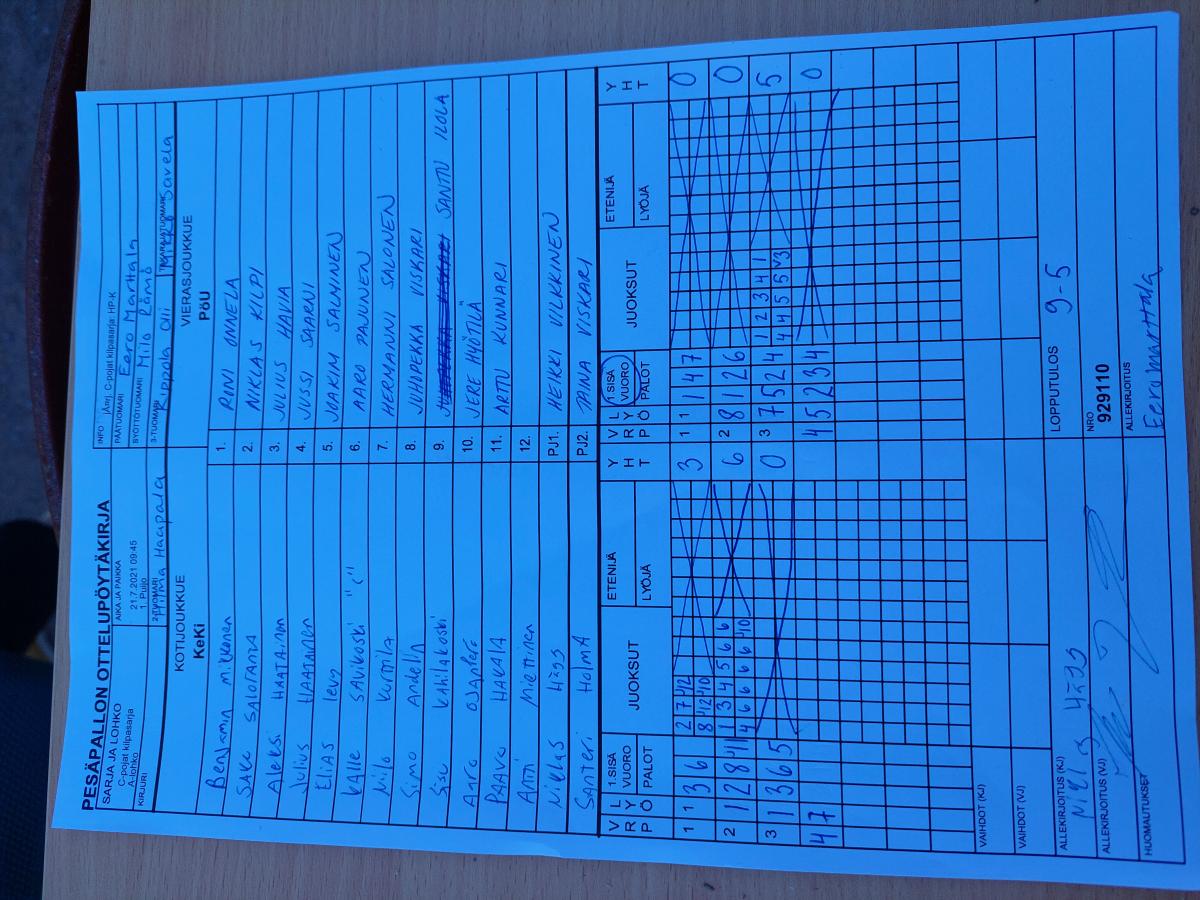 PESÄPALLON OTTELUPÖYTÄKIRJA
SARJA JA LOHKO
C-pojat kilpasarja
A-lohko
AIKA JA PAIKKA
21.7.2021 09:45
1. Puijo
INFO
C-pojat kilpasarja: HP-K
PÄÄTUOMARI Eero Marttala
SYÖTTÖTUOMARI Milo Rämö
KIRJURI
2-TUOMARI Haapala
3-TUOMARI Kippola Olli
TAKARAJATUOMARI Mikko Savela
KOTIJOUKKUE
KeKi
VIERASJOUKKUE
PöU
Benjamin Mikkonen
1. RONI ONNELA
SAKU SALOTANA
2. NIKLAS KILPI
Aleksi HAATAINEN
3. JULIUS HAVIA
Julius HAATAINEN
4. JUSSI SAARNI
ELIAS levy
5. JOAKIM SALMINEN
KAlle SAVIKOSKI "("
6. AARO PAJUNEN
Milo Vormila
7. HERMANNI SALONEN
Simo Andelin
8. JUHIPEKKA VISKARI
Sisu Kahilakoski
9. SANTTU ILOLA
Aaro OJANPERÄ
10. JERE MYÖTILÄ
PAAVO HAKALA
11. ARTTU KUNNARI
Anni Miettinen
12.
Niklas
PJ1. HEIKKI VILKKINEN
SANTERI HOLMA
PJ2. TAINA VISKARI
V R P
L Y Ö
1.SISÄ VUORO
PALOT
JUOKSUT
ETENIJÄ
LYÖJÄ
Y H T
V R P
L Y Ö
1.SISÄ VUORO
PALOT
JUOKSUT
ETENIJÄ
LYÖJÄ
Y H T
1 1 3 6 1
2 7 12
8 12 10
3
1 1 1 4 7
0
2 1 2 8 4 1
1 3 4 5 6 6
4 6 6 6 6 10
6
2 6 8 1 2 6
0
3 1 3 6 5
0
3 3 7 5 2 4
1 2 3 4 1
4 4 5 5 V3
5
4 7
4 5 2 3 4
0
VAIHDOT (KJ)
VAIHDOT (VJ)
ALLEKIRJOITUS (KJ)
LOPPUTULOS 9-5
ALLEKIRJOITUS (VJ)
NRO
929110
HUOMAUTUKSET
ALLEKIRJOITUS
Eero Marttala